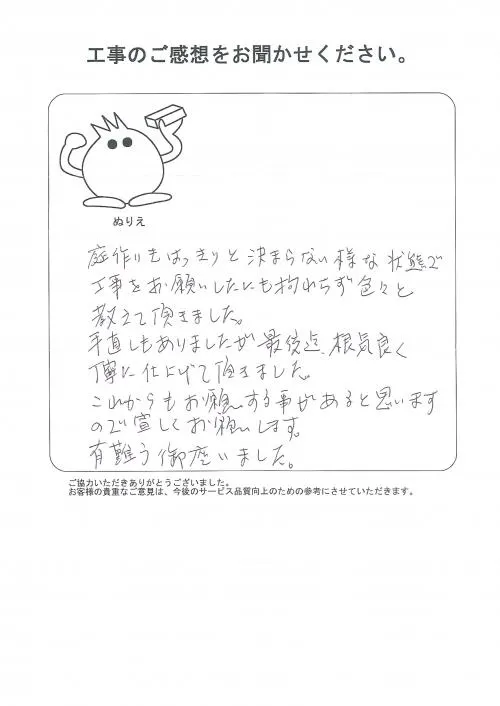 工事のご感想をお聞かせください。
ぬりえ
庭作りもはっきりと決まらない様な状態で
工事をお願いしたにも拘わらず色々と
教えて頂きました。
手直しもありましたが最後迄、根気良く
丁寧に仕上げて頂きました。
これからもお願いする事があると思います
ので宜しくお願いします。
有難う御座いました。
ご協力いただきありがとうございました。
お客様の貴重なご意見は、今後のサービス品質向上のための参考にさせていただきます。